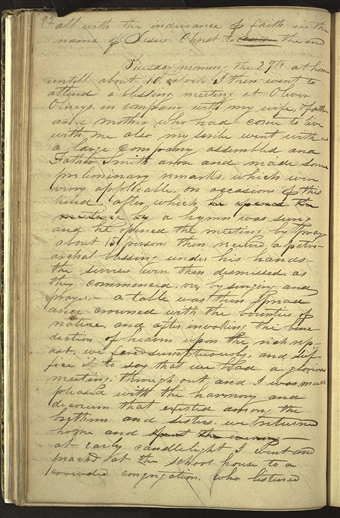 92
all, with the indurance of faith in the
name of Jesus Christ to the end
Tuesday morning the 29th at home
untill about 10 oclock I then went to
attend a blessing meeting at Oliver
Olneys in company with my wife, & father
and mother who had come to live
with me also my scribe went with us
a large company assembled and
Father Smith arose and made some
preliminary remarks, which were
very applicable, on occasions of this
kind, after which
a hymn was sung
and he opened the meeting by prayer
about 15 person then recieved a patri-
archal blessing under his hands
the services were then dismissed as
they commenced, viz by singing and
prayer. a table was then spread
and crowned with the bounties of
nature, and after invoking the bene
diction of heaven upon the rich rep
ast, we fared sumptuously, and suf-
fice it to say that we had a glorious
meeting, through out and I was much
pleased with the harmony and
decorum that existed among the
brethren and sisters, we returned
home and spent the evening
at early candlelight I went and
preachd at the School house to a
crowded congregation, who listened